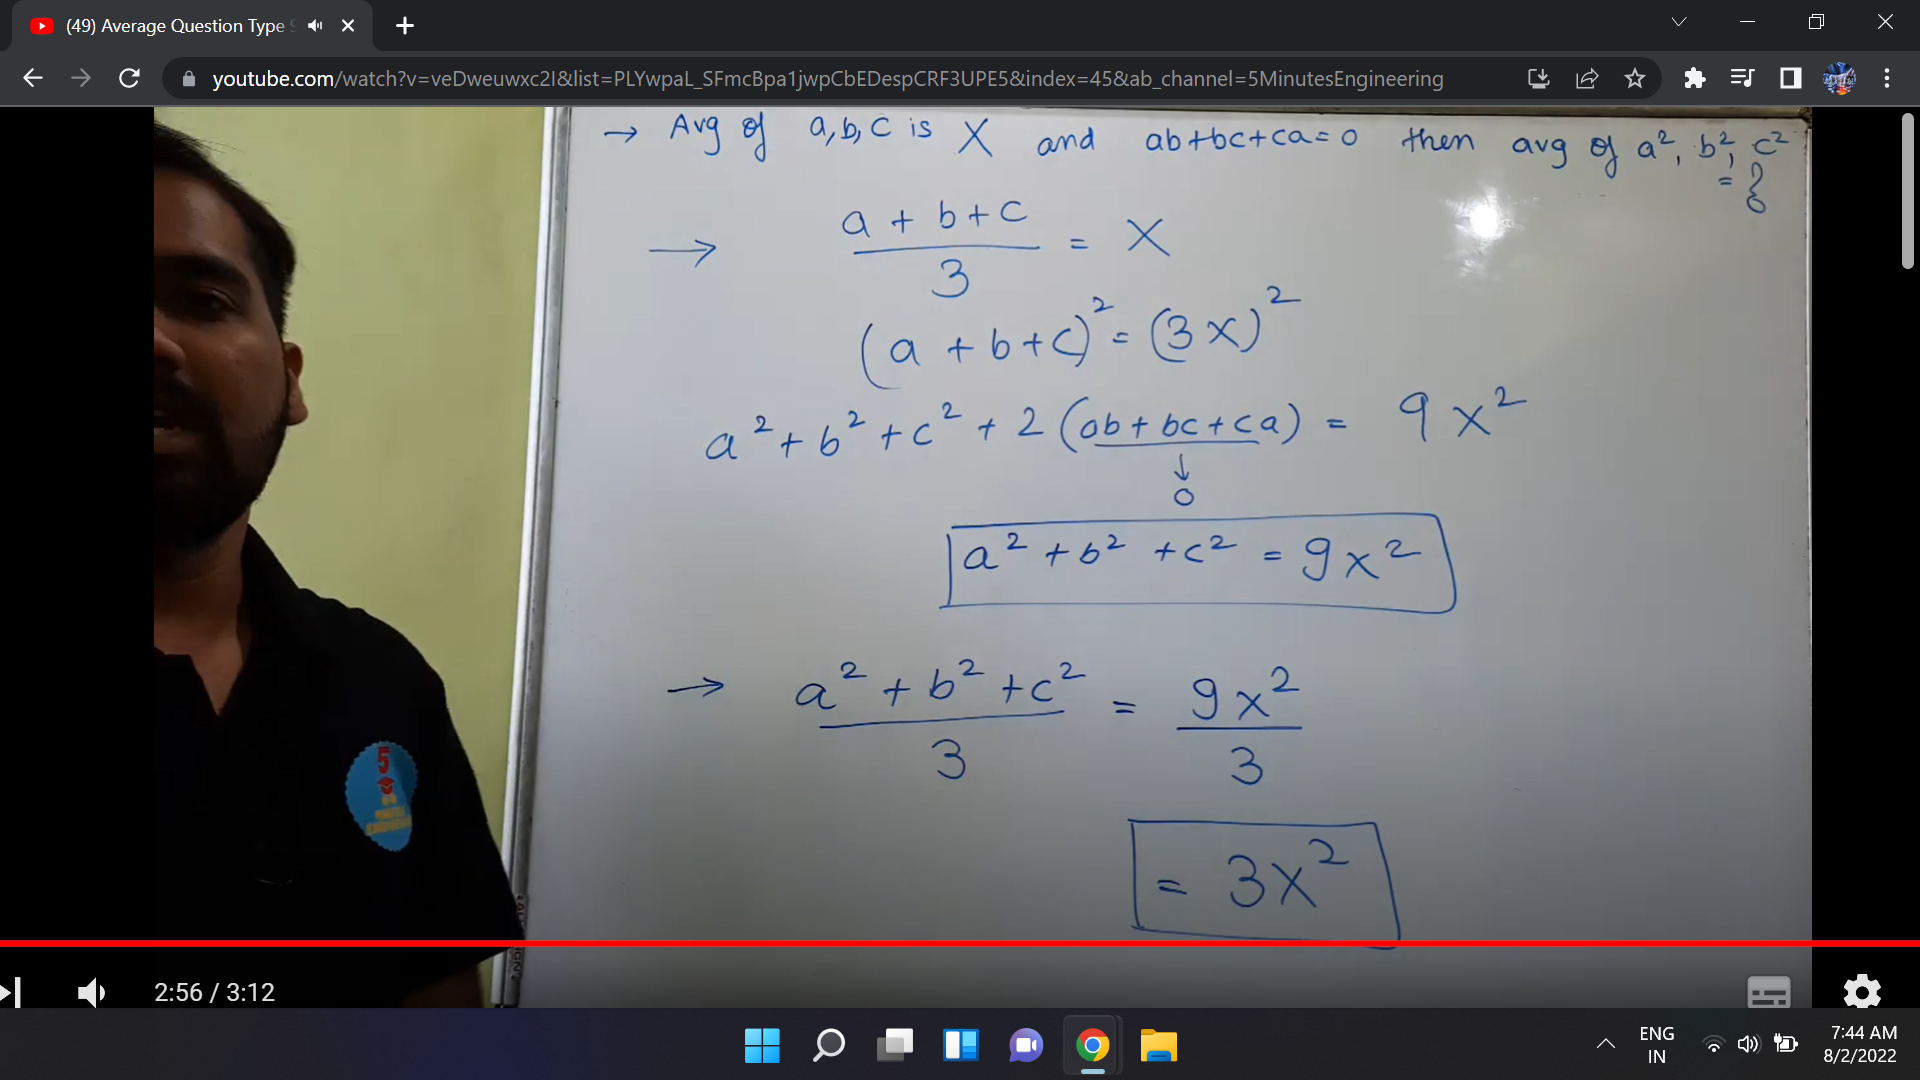 (49) Average Question Type
youtube.com/watch?v=veDweuwxc2I&list=PLYwpaL_SFmcBpa1jwpCbEDespCRF3UPE5&index=45&ab_channel=5MinutesEngineering
→ Avg of a,b,c is X and ab+bc+ca=0 then avg of a², b², c²
= ?
→ a + b + c / 3 = X
(a + b + c)² = (3x)²
a² + b² + c² + 2 (ab + bc + ca) = 9x²
↓
0
a² + b² + c² = 9x²
→ a² + b² + c² / 3 = 9x² / 3
= 3x²
5
2:56 / 3:12
ENG
IN
7:44 AM
8/2/2022